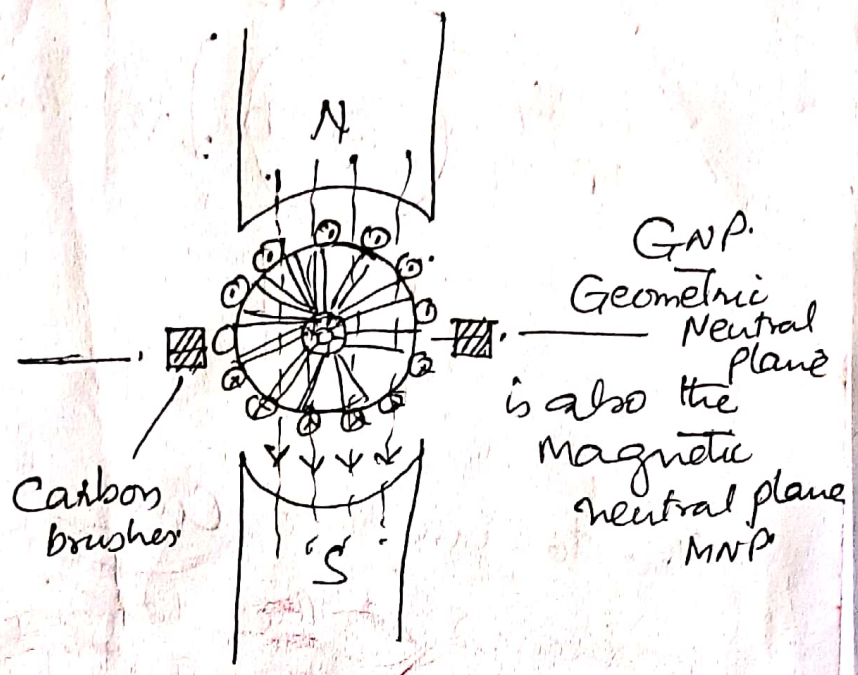 N
GNP.
Geometric
Neutral
plane
is also the
Magnetic
neutral plane
MNP.
Carbon
brushes
S